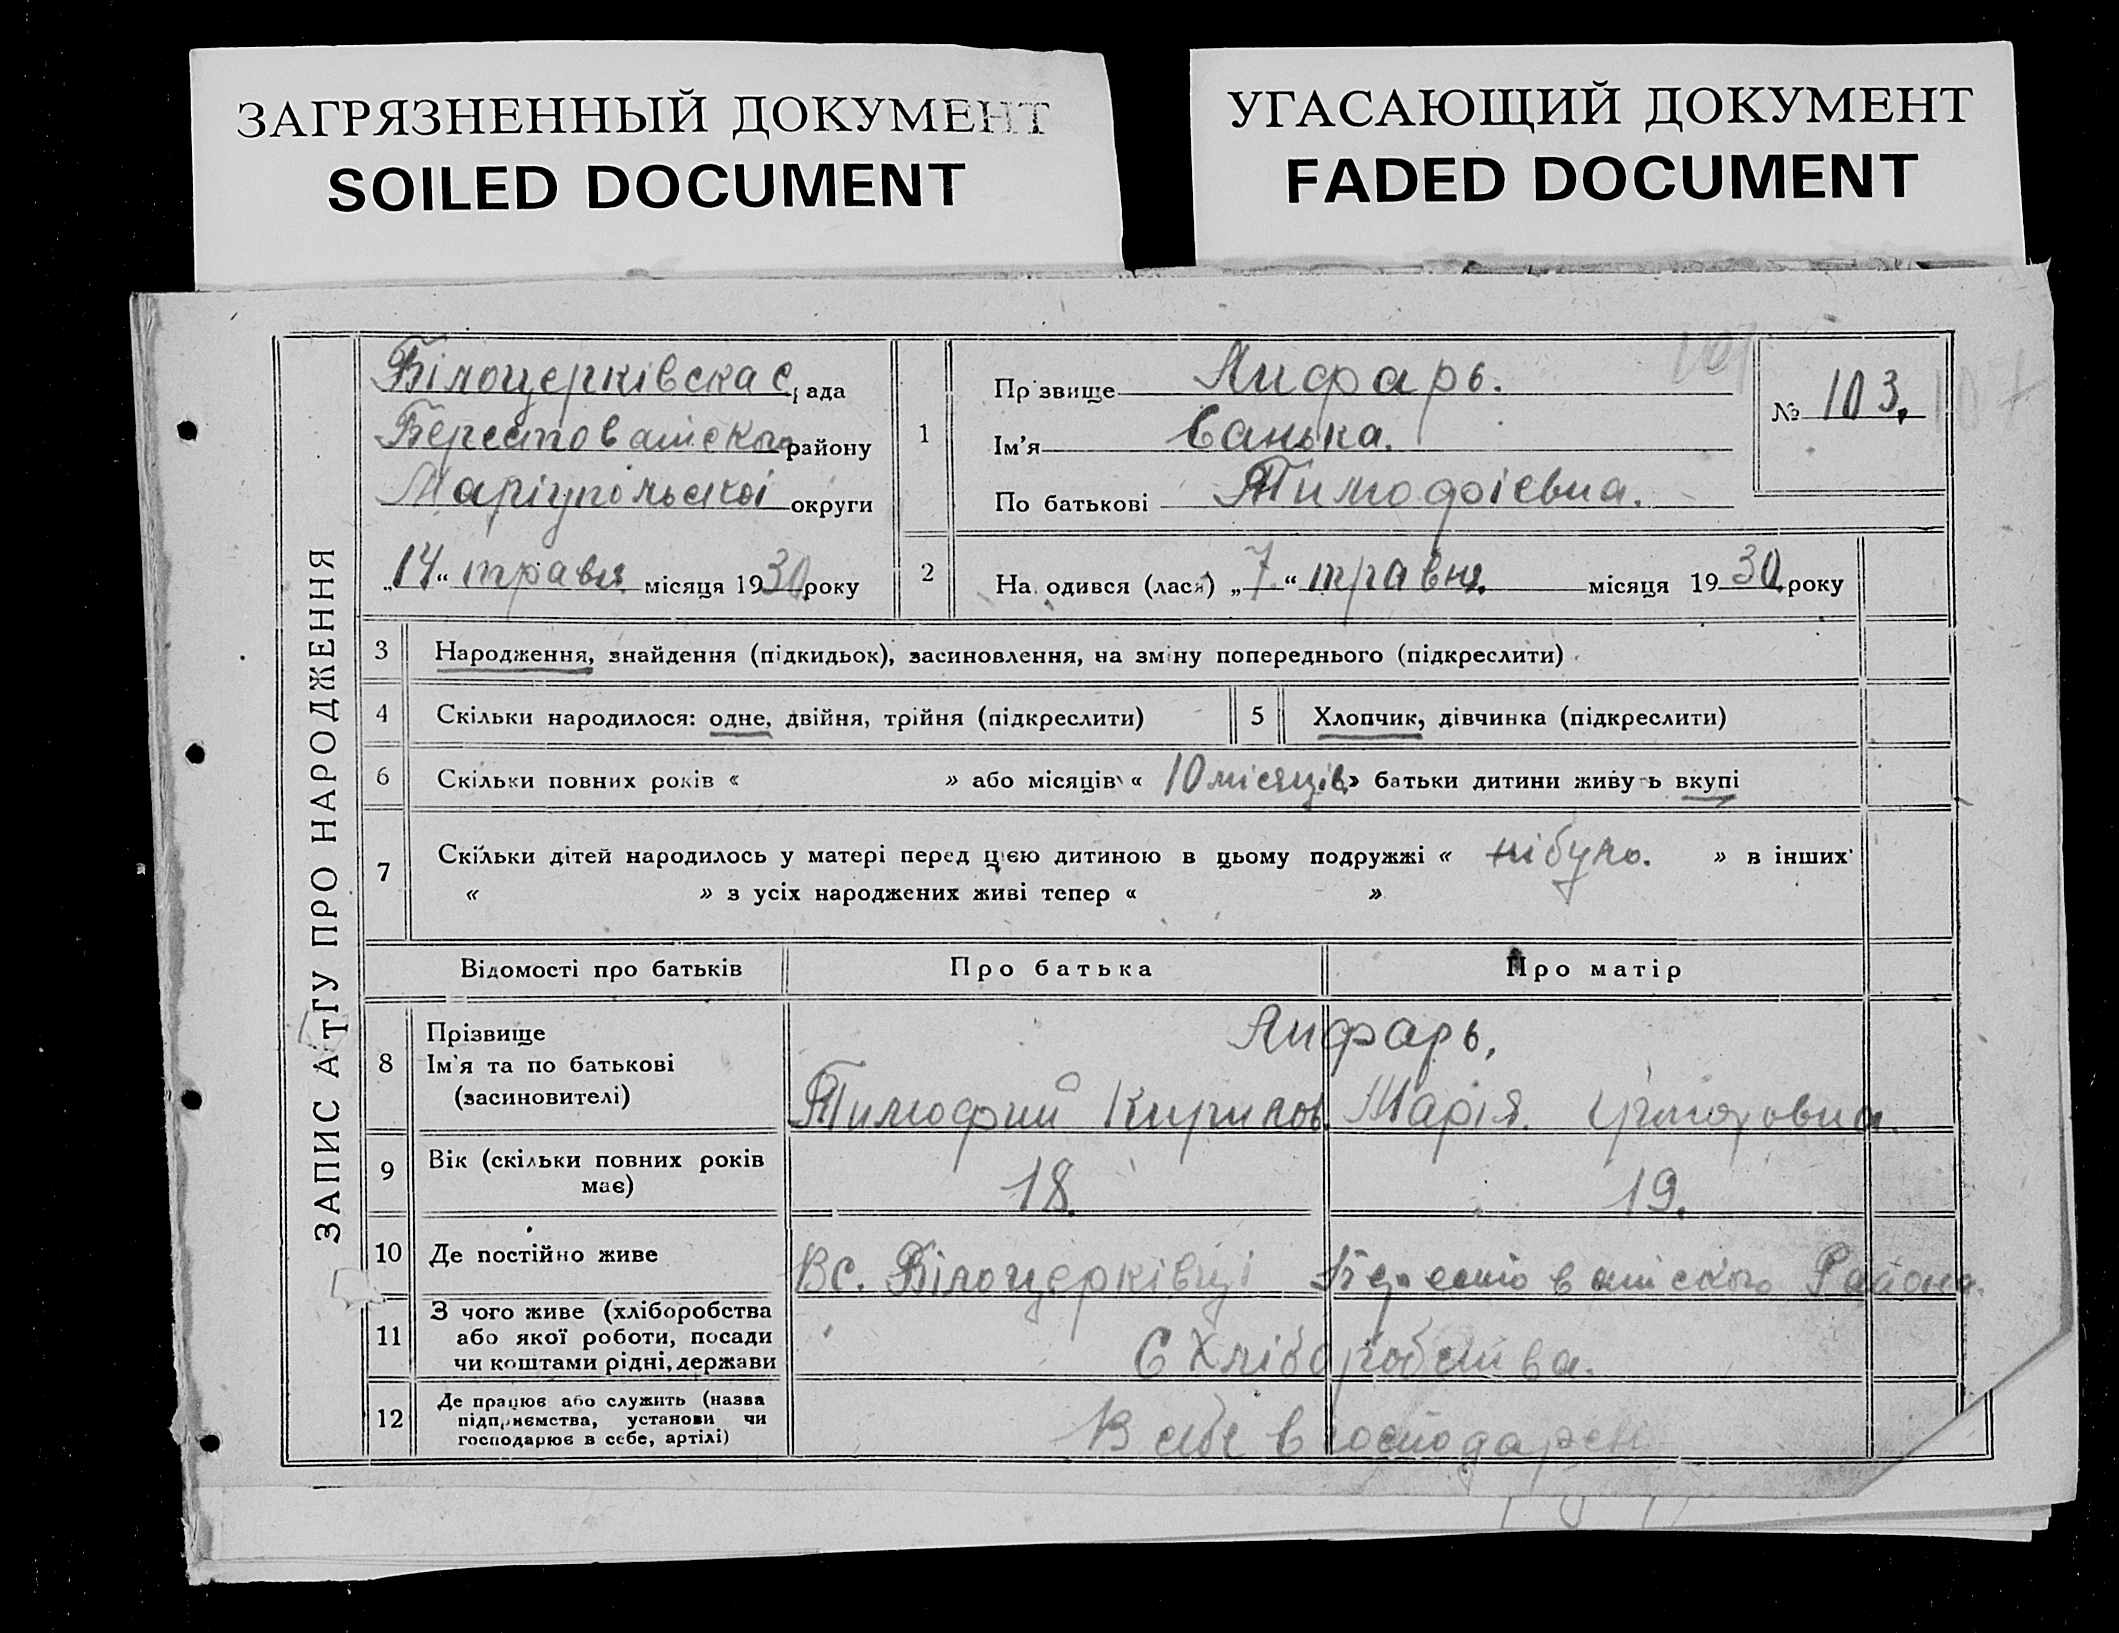 ЗАГРЯЗНЕННЫЙ ДОКУМЕНТ
SOILED DOCUMENT
УГАСАЮЩИЙ ДОКУМЕНТ
FADED DOCUMENT
ЗАПИС АКТУ ПРО НАРОДЖЕННЯ
Білоцерківска с рада
Берестоватског району
Маріупольскої округи
„14“ травня місяця 1930 року
1
Прізвище
Ім'я Санька.
По батькові Тимофієвна.
№ 103.
2
На одився (лася) „7.“ травня. місяця 1930 року
3 Народження, знайдення (підкидьок), засиновлення, на зміну попереднього (підкреслити)
4 Скільки народилося: одне, двійня, трійня (підкреслити)
5 Хлопчик, дівчинка (підкреслити)
6 Скільки повних років « » або місяців « 10 місяців » батьки дитини живу ь вкупі
7 Скільки дітей народилось у матері перед цією дитиною в цьому подружжі « нібуло. » в інших
« » з усіх народжених живі тепер « »
Відомості про батьків Про батька Про матір
8 Прізвище
Ім'я та по батькові
(засиновителі)
Тимофий Кирилов. Марія.
9 Вік (скільки повних років
має)
18. 19.
10 Де постійно живе
Вс. Білоцерківці Берестоватского Района.
11 З чого живе (хліборобства
або якої роботи, посади
чи коштами рідні, держави
С Хліборобства.
12 Де працює або служить (назва
підприємства, установи чи
господарює в себе, артілі)
В себе в господарст